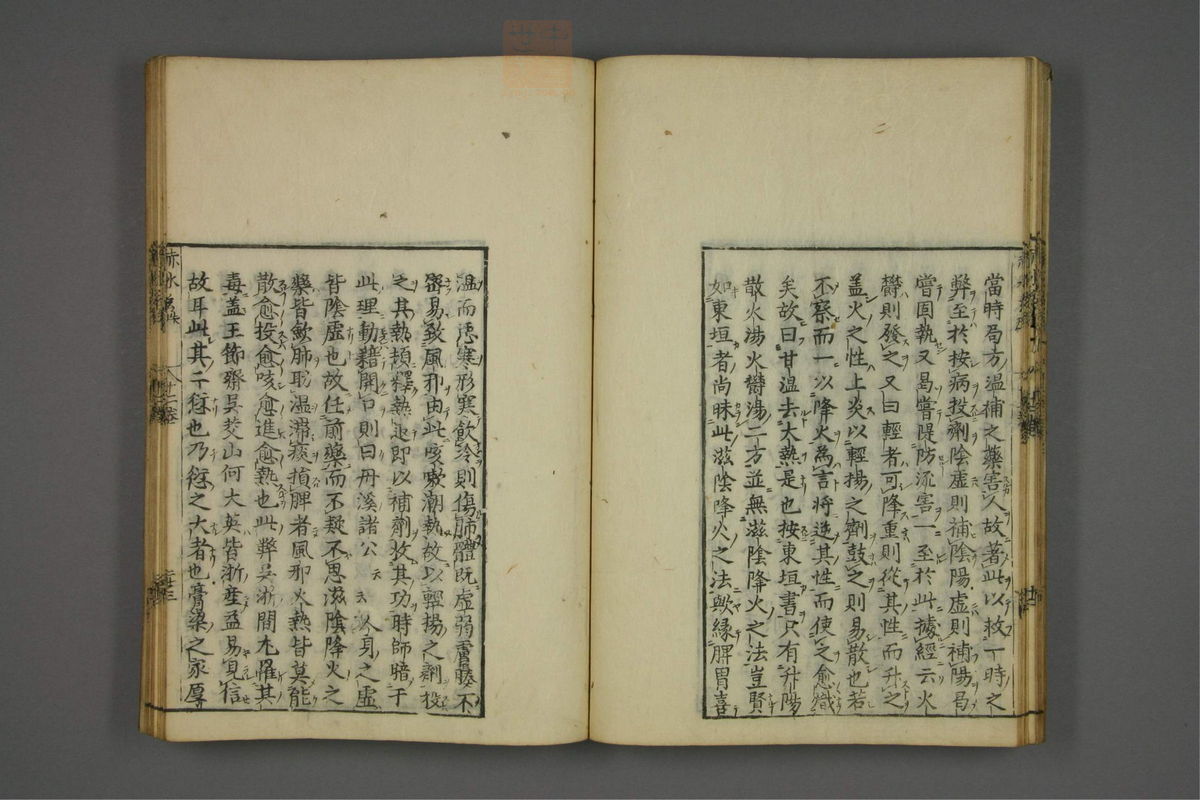 當時局方溫補之藥害人故著此以救一時之
弊至於按病投劑陰虛則補陰陽虛則補陽曷
嘗固執又曷嘗隄防流害一至於此據經云火
欝則發之又曰輕者可降重則從其性而升之
盖火之性上炎以輕揚之劑鼓之則易散也若
不察而一以降火為言將逆其性而使之愈熾
矣故曰甘温去大熱是也按東垣書只有升陽
散火湯火欝湯二方並無滋陰降火之法豈賢
如東垣者尚昧此滋陰降火之法歟緣脾胃喜
温而恶寒形寒飲冷則傷肺體既虛弱腠不
密易致風邪由此咳嗽潮執故以輕揚之劑投
之其執頓釋熱退即以補劑收其功時師暗于
此理動藉開口則曰丹溪諸公云人身之虛
皆陰虛也故任前藥而不疑不思滋陰降火之
藥皆斂肺耴温滯痰損脾者風邪火熱皆莫能
散愈投愈咳愈進愈熱也此弊吳浙間尤罹其
毒盖王節齋吳茭山何大英皆浙產益易見信
故耳此其二愆也乃愆之大者也膏梁之家厚
赤水
十二卷